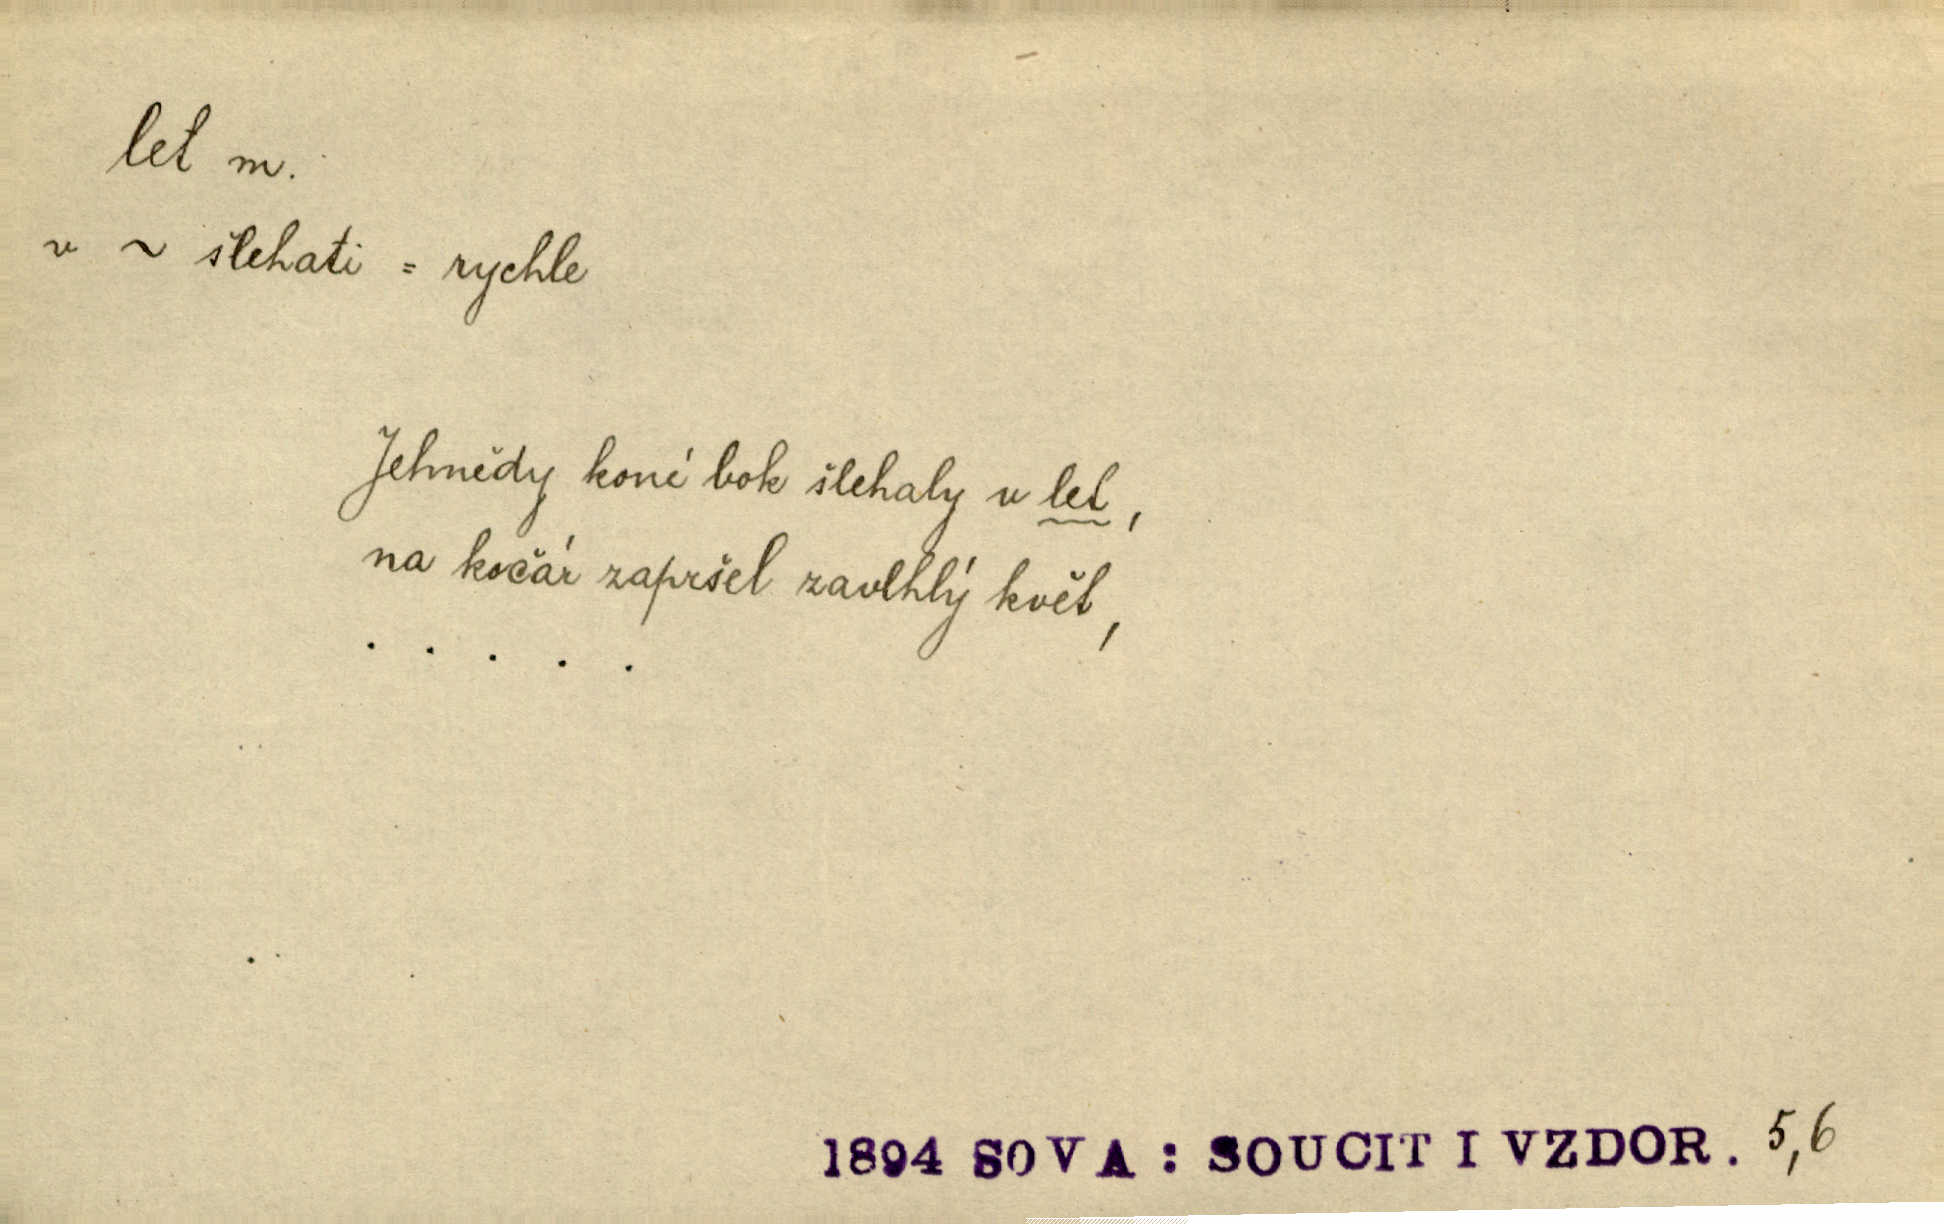 let m.
v ~ šlehati = rychle
Jehnědy koní bok šlehaly v let,
na kočár zapršel zavlhlý květ,
. . . . .
1894 SOVA : SOUCIT I VZDOR. 5,6